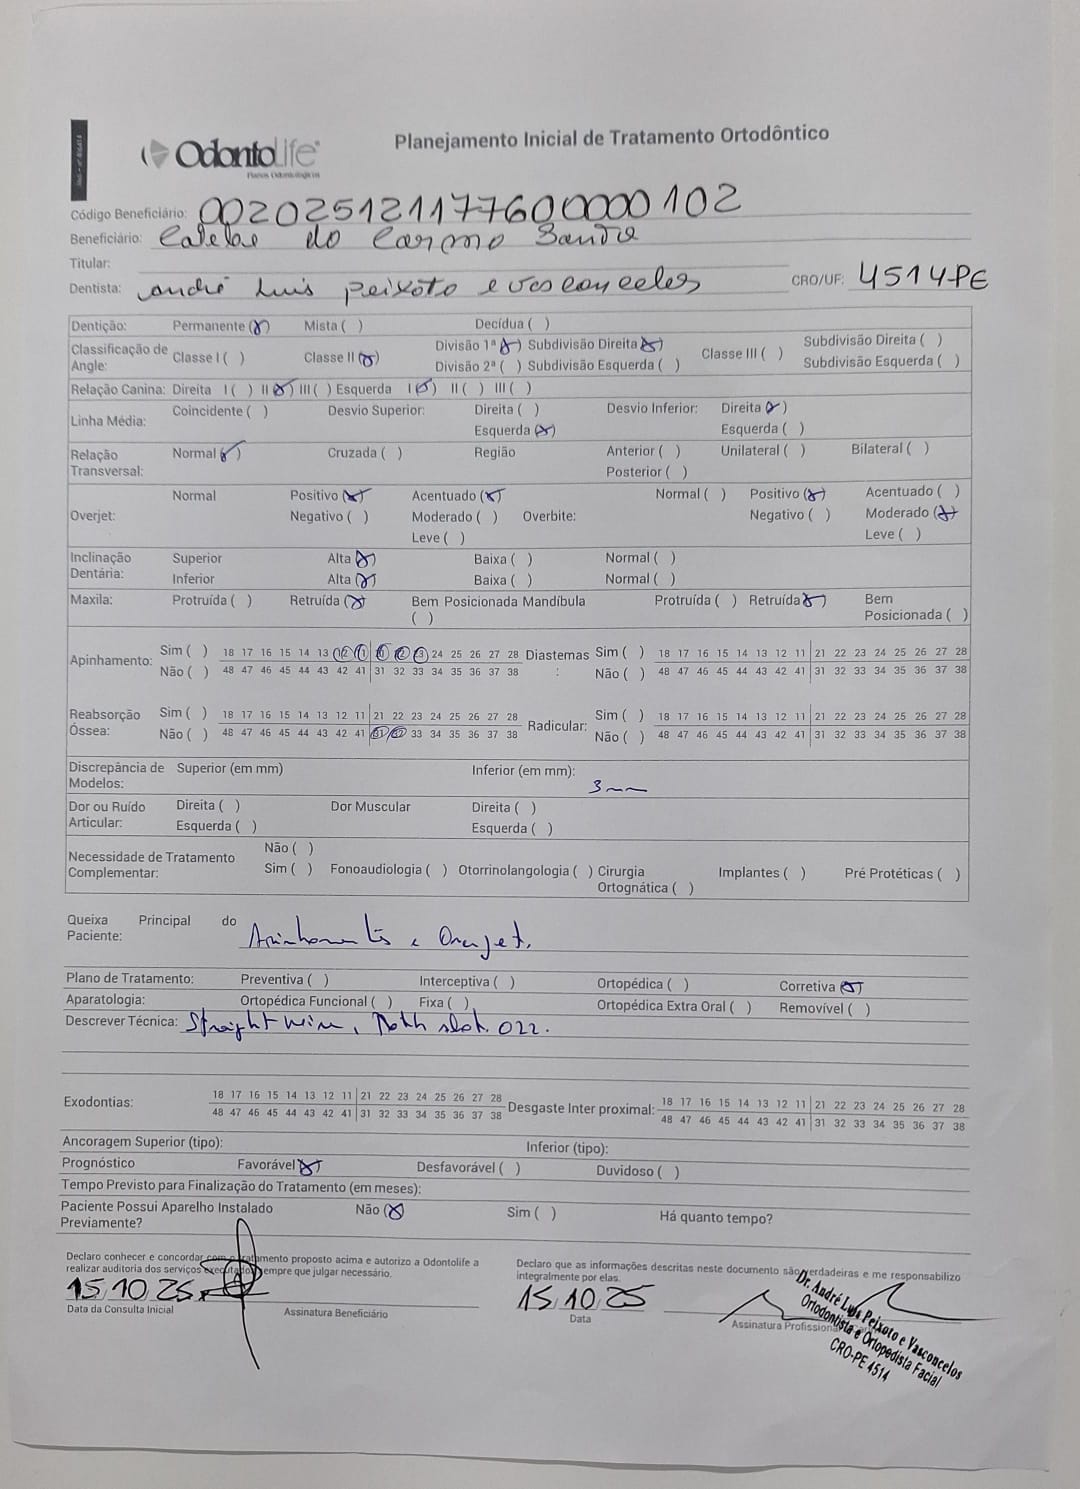 OdontoLife
Planos Odontológicos
Planejamento Inicial de Tratamento Ortodôntico
Código Beneficiário: 002025121177600000102
Beneficiário: do Carmo
Titular:
Dentista: André Luis Peixoto e Vasconcelos CRO/UF: 4514-PE
Dentição: Permanente (x) Mista ( ) Decídua ( )
Classificação de Angle: Classe I ( ) Classe II (x) Divisão 1ª (x) Subdivisão Direita (x) Classe III ( ) Subdivisão Direita ( )
Divisão 2ª ( ) Subdivisão Esquerda ( ) Subdivisão Esquerda ( )
Relação Canina: Direita I ( ) II (x) III ( ) Esquerda I (x) II ( ) III ( )
Linha Média: Coincidente ( ) Desvio Superior: Direita ( ) Desvio Inferior: Direita (x)
Esquerda (x) Esquerda ( )
Relação Transversal: Normal (x) Cruzada ( ) Região Anterior ( ) Unilateral ( ) Bilateral ( )
Posterior ( )
Overjet: Normal Positivo (x) Acentuado (x) Overbite: Normal ( ) Positivo (x) Acentuado ( )
Negativo ( ) Moderado ( ) Negativo ( ) Moderado (x)
Leve ( ) Leve ( )
Inclinação Dentária: Superior Alta (x) Baixa ( ) Normal ( )
Inferior Alta (x) Baixa ( ) Normal ( )
Maxila: Protruída ( ) Retruída (x) Bem Posicionada ( ) Mandíbula Protruída ( ) Retruída (x) Bem Posicionada ( )
Apinhamento: Sim ( ) 18 17 16 15 14 13 12 11 21 22 23 24 25 26 27 28 Diastemas : Sim ( ) 18 17 16 15 14 13 12 11 21 22 23 24 25 26 27 28
Não ( ) 48 47 46 45 44 43 42 41 31 32 33 34 35 36 37 38 Não ( ) 48 47 46 45 44 43 42 41 31 32 33 34 35 36 37 38
Reabsorção Óssea: Sim ( ) 18 17 16 15 14 13 12 11 21 22 23 24 25 26 27 28 Radicular: Sim ( ) 18 17 16 15 14 13 12 11 21 22 23 24 25 26 27 28
Não ( ) 48 47 46 45 44 43 42 41 31 32 33 34 35 36 37 38 Não ( ) 48 47 46 45 44 43 42 41 31 32 33 34 35 36 37 38
Discrepância de Modelos: Superior (em mm) Inferior (em mm): 3mm
Dor ou Ruído Articular: Direita ( ) Dor Muscular Direita ( )
Esquerda ( ) Esquerda ( )
Necessidade de Tratamento Complementar: Não ( )
Sim ( ) Fonoaudiologia ( ) Otorrinolangologia ( ) Cirurgia Ortognática ( ) Implantes ( ) Pré Protéticas ( )
Queixa Principal do Paciente: Apinhamento e Overjet.
Plano de Tratamento: Preventiva ( ) Interceptiva ( ) Ortopédica ( ) Corretiva (x)
Aparatologia: Ortopédica Funcional ( ) Fixa ( ) Ortopédica Extra Oral ( ) Removível ( )
Descrever Técnica: Straight wire, Roth slot. 022.
Exodontias: 18 17 16 15 14 13 12 11 21 22 23 24 25 26 27 28 Desgaste Inter proximal: 18 17 16 15 14 13 12 11 21 22 23 24 25 26 27 28
48 47 46 45 44 43 42 41 31 32 33 34 35 36 37 38 48 47 46 45 44 43 42 41 31 32 33 34 35 36 37 38
Ancoragem Superior (tipo): Inferior (tipo):
Prognóstico Favorável (x) Desfavorável ( ) Duvidoso ( )
Tempo Previsto para Finalização do Tratamento (em meses):
Paciente Possui Aparelho Instalado Previamente? Não (x) Sim ( ) Há quanto tempo?
Declaro conhecer e concordar com o tratamento proposto acima e autorizo a Odontolife a
realizar auditoria dos serviços executados sempre que julgar necessário.
15/10/25
Data da Consulta Inicial Assinatura Beneficiário
Declaro que as informações descritas neste documento são verdadeiras e me responsabilizo
integralmente por elas.
15/10/25
Data Assinatura Profissional
Dr. André Luis Peixoto e Vasconcelos
Ortodontista e Ortopedista Facial
CRO-PE 4514